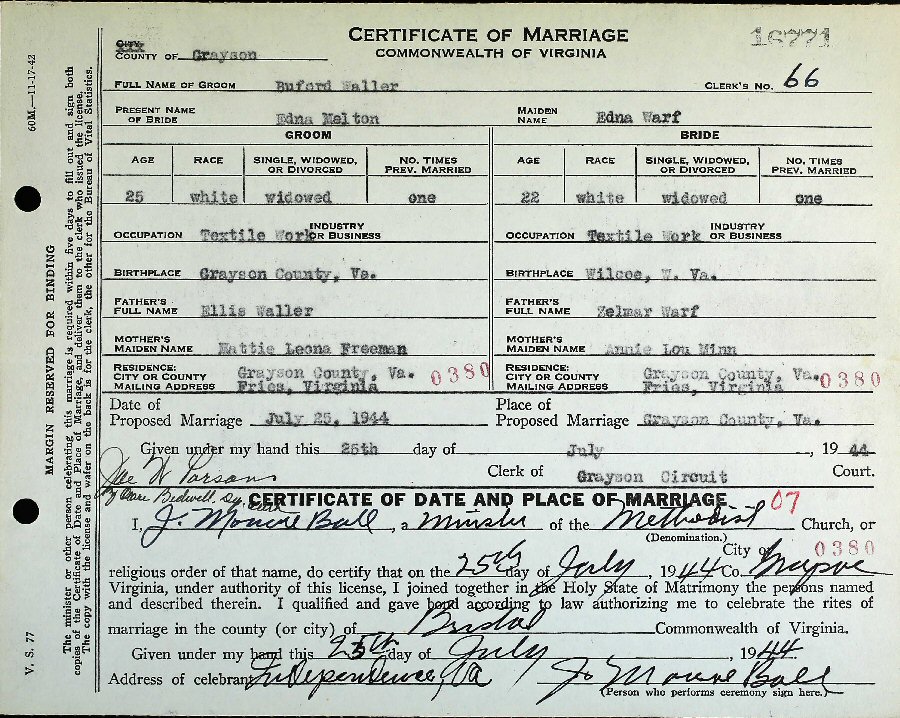 CERTIFICATE OF MARRIAGE
COMMONWEALTH OF VIRGINIA
16771
CITY
COUNTY OF Grayson
FULL NAME OF GROOM Buford Waller CLERK'S NO. 66
PRESENT NAME OF BRIDE Edna Melton MAIDEN NAME Edna Warf
GROOM BRIDE
AGE RACE SINGLE, WIDOWED, OR DIVORCED NO. TIMES PREV. MARRIED AGE RACE SINGLE, WIDOWED, OR DIVORCED NO. TIMES PREV. MARRIED
25 white widowed one 22 white widowed one
OCCUPATION Textile Work INDUSTRY OR BUSINESS OCCUPATION Textile Work INDUSTRY OR BUSINESS
BIRTHPLACE Grayson County, Va. BIRTHPLACE Wilcoe, W. Va.
FATHER'S FULL NAME Ellis Waller FATHER'S FULL NAME Zelmar Warf
MOTHER'S MAIDEN NAME Mattie Leona Freeman MOTHER'S MAIDEN NAME Annie Lou Minn
RESIDENCE: CITY OR COUNTY MAILING ADDRESS Grayson County, Va. Fries, Virginia 0380 RESIDENCE: CITY OR COUNTY MAILING ADDRESS Grayson County, Va. Fries, Virginia 0380
Date of Proposed Marriage July 25, 1944 Place of Proposed Marriage Grayson County, Va.
Given under my hand this 25th day of July, 1944
Clerk of Grayson Circuit Court.
Joe W Parsons
By Bedwell, Dy. Clerk
CERTIFICATE OF DATE AND PLACE OF MARRIAGE
07
I, J. Monroe Ball, a Minister of the Methodist Church, or
(Denomination.)
City or 0380
religious order of that name, do certify that on the 25th day of July, 1944 Co.
Virginia, under authority of this license, I joined together in the Holy State of Matrimony the persons named
and described therein. I qualified and gave bond according to law authorizing me to celebrate the rites of
marriage in the county (or city) of Bristol Commonwealth of Virginia.
Given under my hand this 25th day of July, 1944
Address of celebrant Independence, Va J. Monroe Ball
(Person who performs ceremony sign here.)
60M.—11-17-42
MARGIN RESERVED FOR BINDING
V. S. 77
The minister or other person celebrating this marriage is required within five days to fill out and sign both
copies of the Certificate of Date and Place of Marriage, and deliver them to the clerk who issued the license.
The copy with the license and wafer on the back is for the clerk, the other for the Bureau of Vital Statistics.